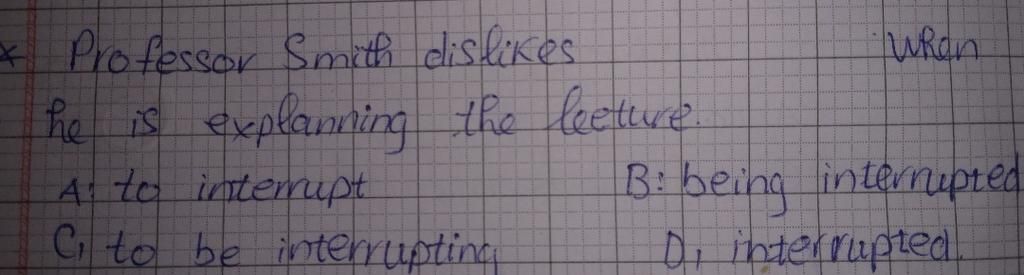 * Professor Smith dislikes when
he is explanning the lecture.
A: to interrupt B: being interrupted
C, to be interrupting D, interrupted.